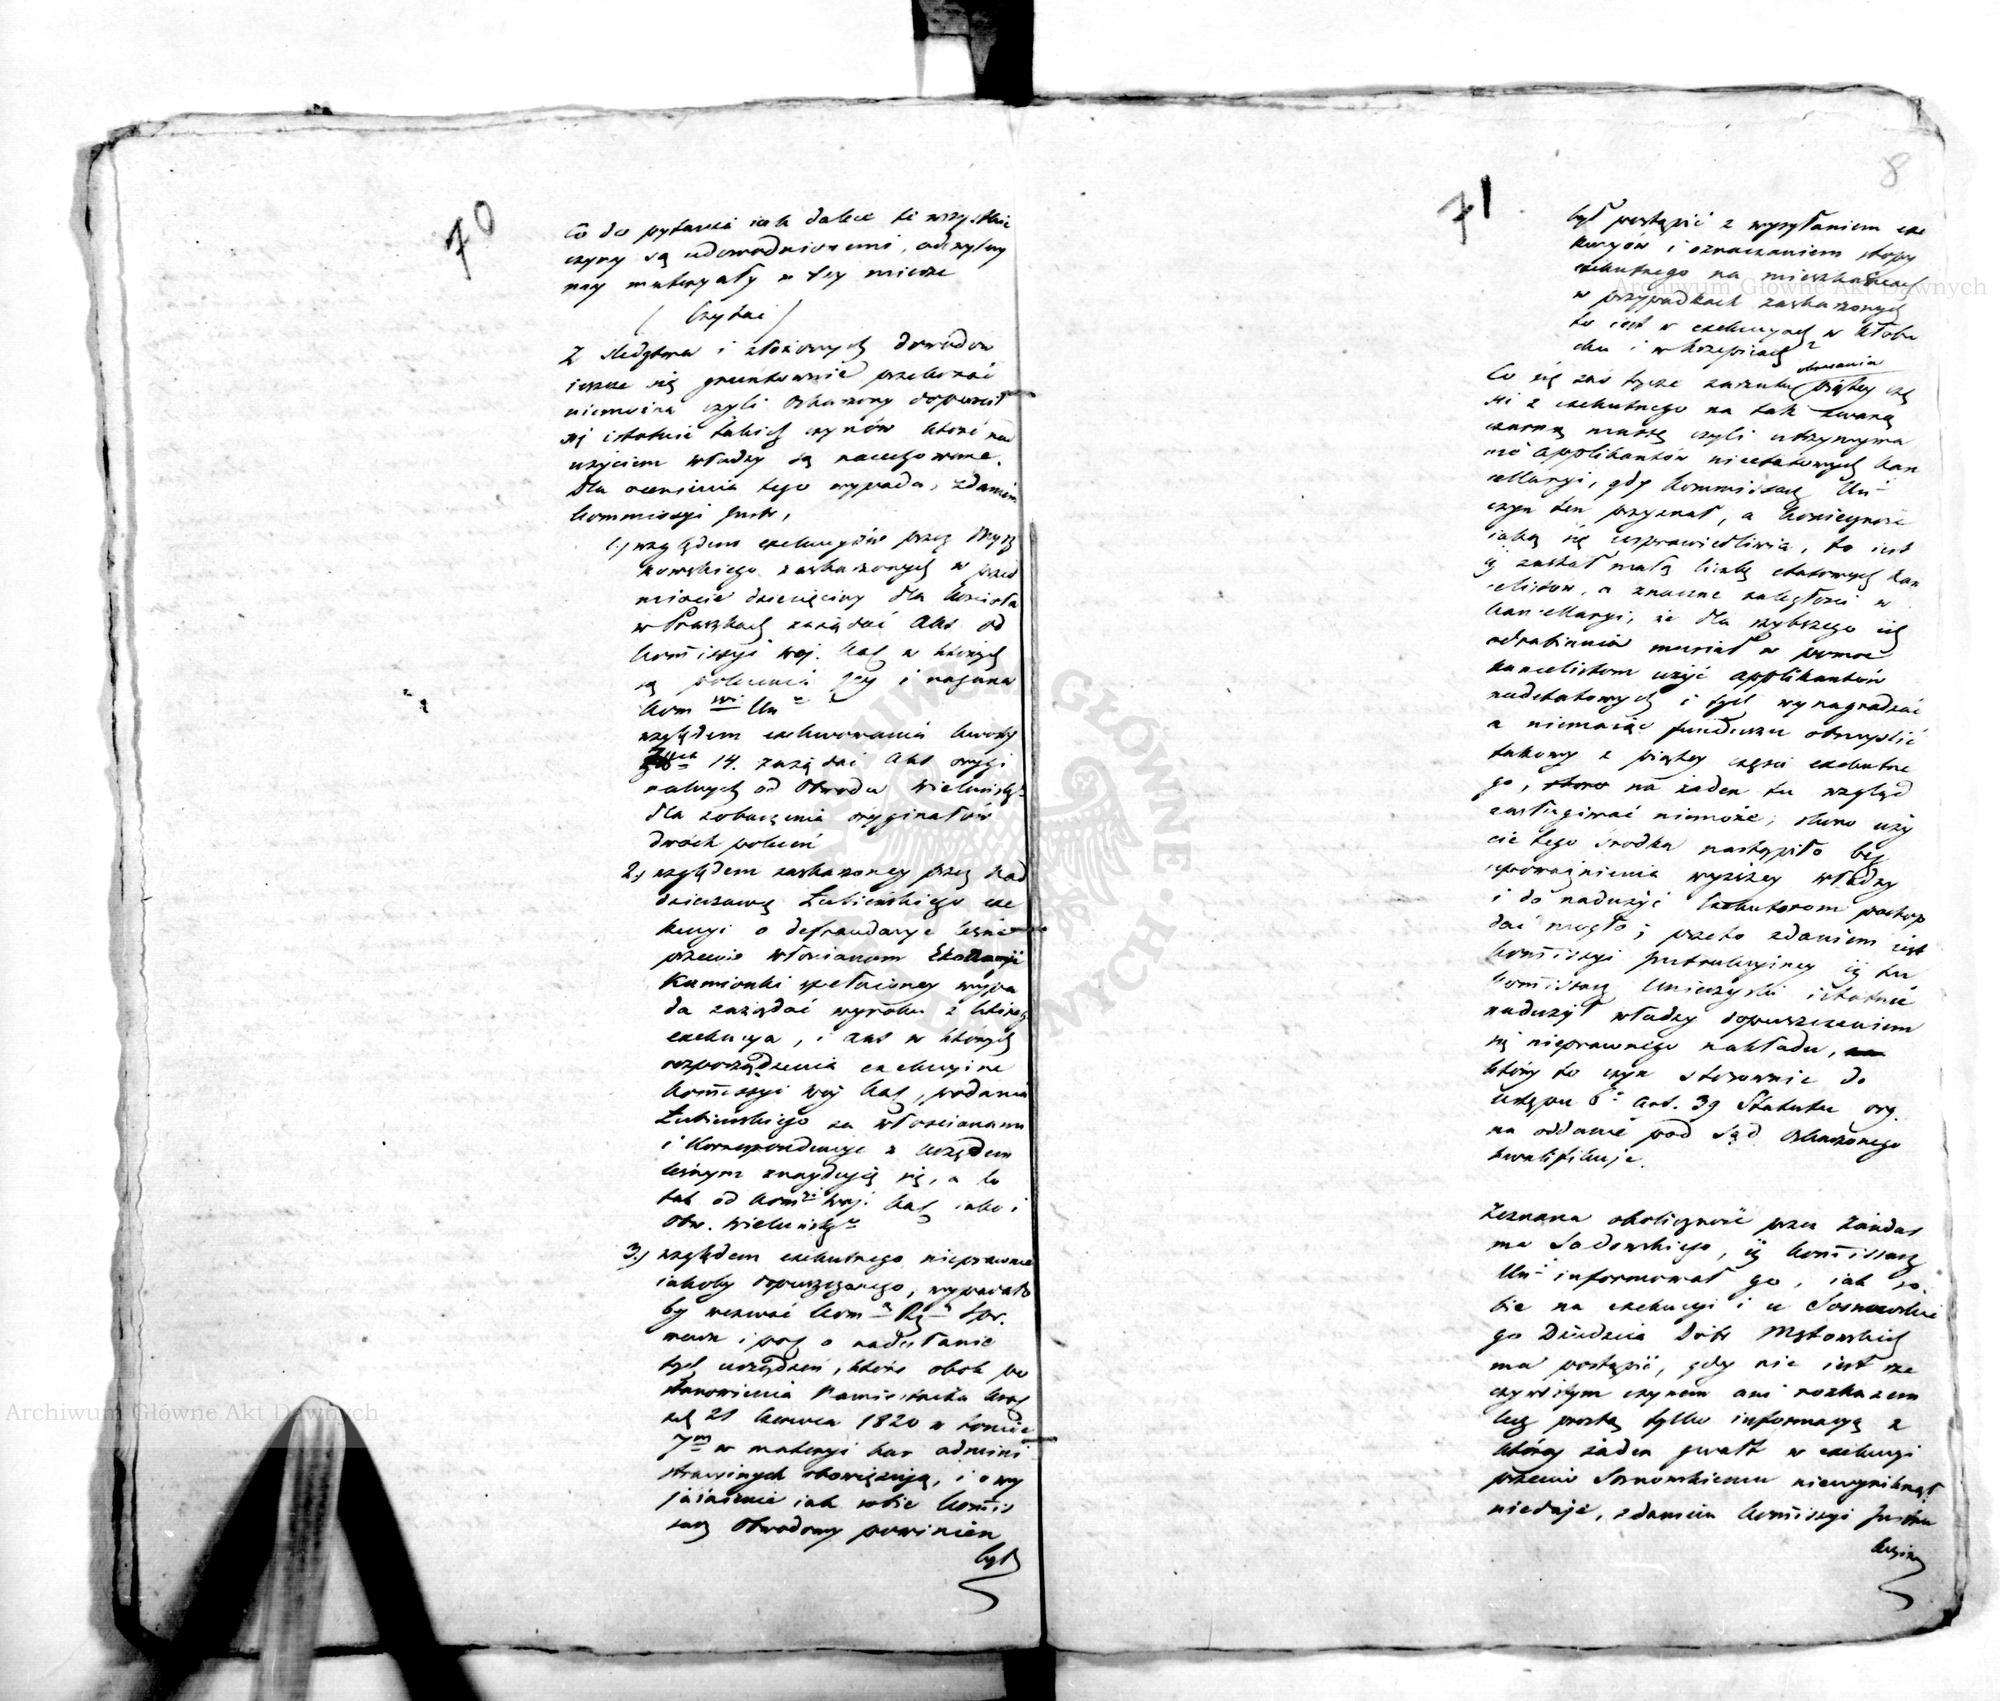 70
Co do pytania iak dalece te wszystkie
czyny są udowodnionemi, odczytuy
my materyały w tey mierze
/ Czytać /
Z śledztwa i złożonych dowodow
ieszcze się gruntownie przekonać
niemożna czyli Oskarżony dopuścił
się istotnie takich czynów które nad
użyciem władzy są nacechowane.
Dla ocenienia tego wypada, zdaniem
Kommissyi Instr,
1.) względem exekucyiów przez Mysz
kowskiego zaskarżonych w przed
miocie dziesięciny dla Kościoła
w Praszkach zażądać Akt od
Kom̃issyi Woj. Kal w których
są polecenia Jey i nagana
Kom wi Un
względem exekwowania kwoty
14. zażądać Akt orygi
nalnych od Obwodu Wieluńskgo
dla zobaczenia oryginałów
dwóch poleceń
2.) względem zaskarżoney przez Nad
dzierżawcę Łubieńskiego exe
kucyi o defraudacye leśne
przeciw włościanom Ekonomii
Kamionki spełnioney wypa
da zażądać wyroku z którego
exekucya, i Akt w których
rozporządzenia exekucyine
Kom̃issyi Woj Kal, podania
Łubieńskiego za włościanami
i Korrespondencye z Urzędem
leśnym znayduią się, a to
tak od Komyi Woj. Kal iako i
Obw. Wieluńskgo
3.) względem exekutnego nieprawnie
iakoby dopuszczonego, wypadało
by wezwać Kom Rz Spr.
wewn i pol o nadesłanie
tych urządzeń, które obok po
stanowienia Namiestnika Król
z d 21 Czerwca 1820 w tomie
7m w materyi kar admini
stracyinych obowiązują, i o wy
jaśnienie iak sobie Kom̃is
sarz Obwodowy powinien
był
71
8
był postąpić z wysyłaniem exe
kucyów i oznaczaniem stopy
exekutnego na mieszkańcach
w przypadkach zaskarżonych
to iest w exekucyach w Kłobu
cku i w Krzepicach?
Co się zaś tycze zarzutu obracania piątey czę
ści z exekutnego na tak zwaną
czarną massę czyli utrzymywa
nie applikantów nieetatowych Kan
cellaryi, gdy Kommissarz Un
czyn ten przyznał, a konieczność
iaką się usprawiedliwia, to iest
iż zastał małą liczbę etatowych Kan
celistów, a znaczne zaległości w
Kancellaryi, że dla szybszego ich
odrabiania musiał w pomoc
kancelistom użyć applikantów
nadetatowych i tych wynagradzać
a niemaiąc funduszu obmyślić
takowy z piątey części exekutne
go, na żaden tu wzgląd
zasługiwać niemoże; skoro uży
cie tego środka nastąpiło bez
upoważnienia wyższey władzy
i do nadużyć Exekutorom pochop
dać mogło; przeto zdaniem iest
Kom̃issyi Instrukcyiney iż tu
Kom̃issarz Unieszyski istotnie
nadużył władzy dopuszczeniem
się nieprawnego nakładu,
który to czyn stosownie do
Ustępu 6o Art. 39 Statutu org.
na oddanie pod Sąd Oskarżonego
kwalifikuje.
Zeznana okoliczność przez Żandar
ma Sadowskiego, iż Kom̃issarz
Un informował go, iak so
bie na exekucyi i u Sosnowskie
go Dziedzica Dóbr Mętowskich
ma postąpić, gdy nie iest rze
czywistym czynem ani rozkazem
lecz prostą tylko informacyą z
którey żaden gwałt w exekucyi
przeciw Sosnowskiemu niewyniknął
niedaje, zdaniem Kom̃issyi Instru
kcyiney
Archiwum Główne Akt Dawnych
Archiwum Główne Akt Dawnych